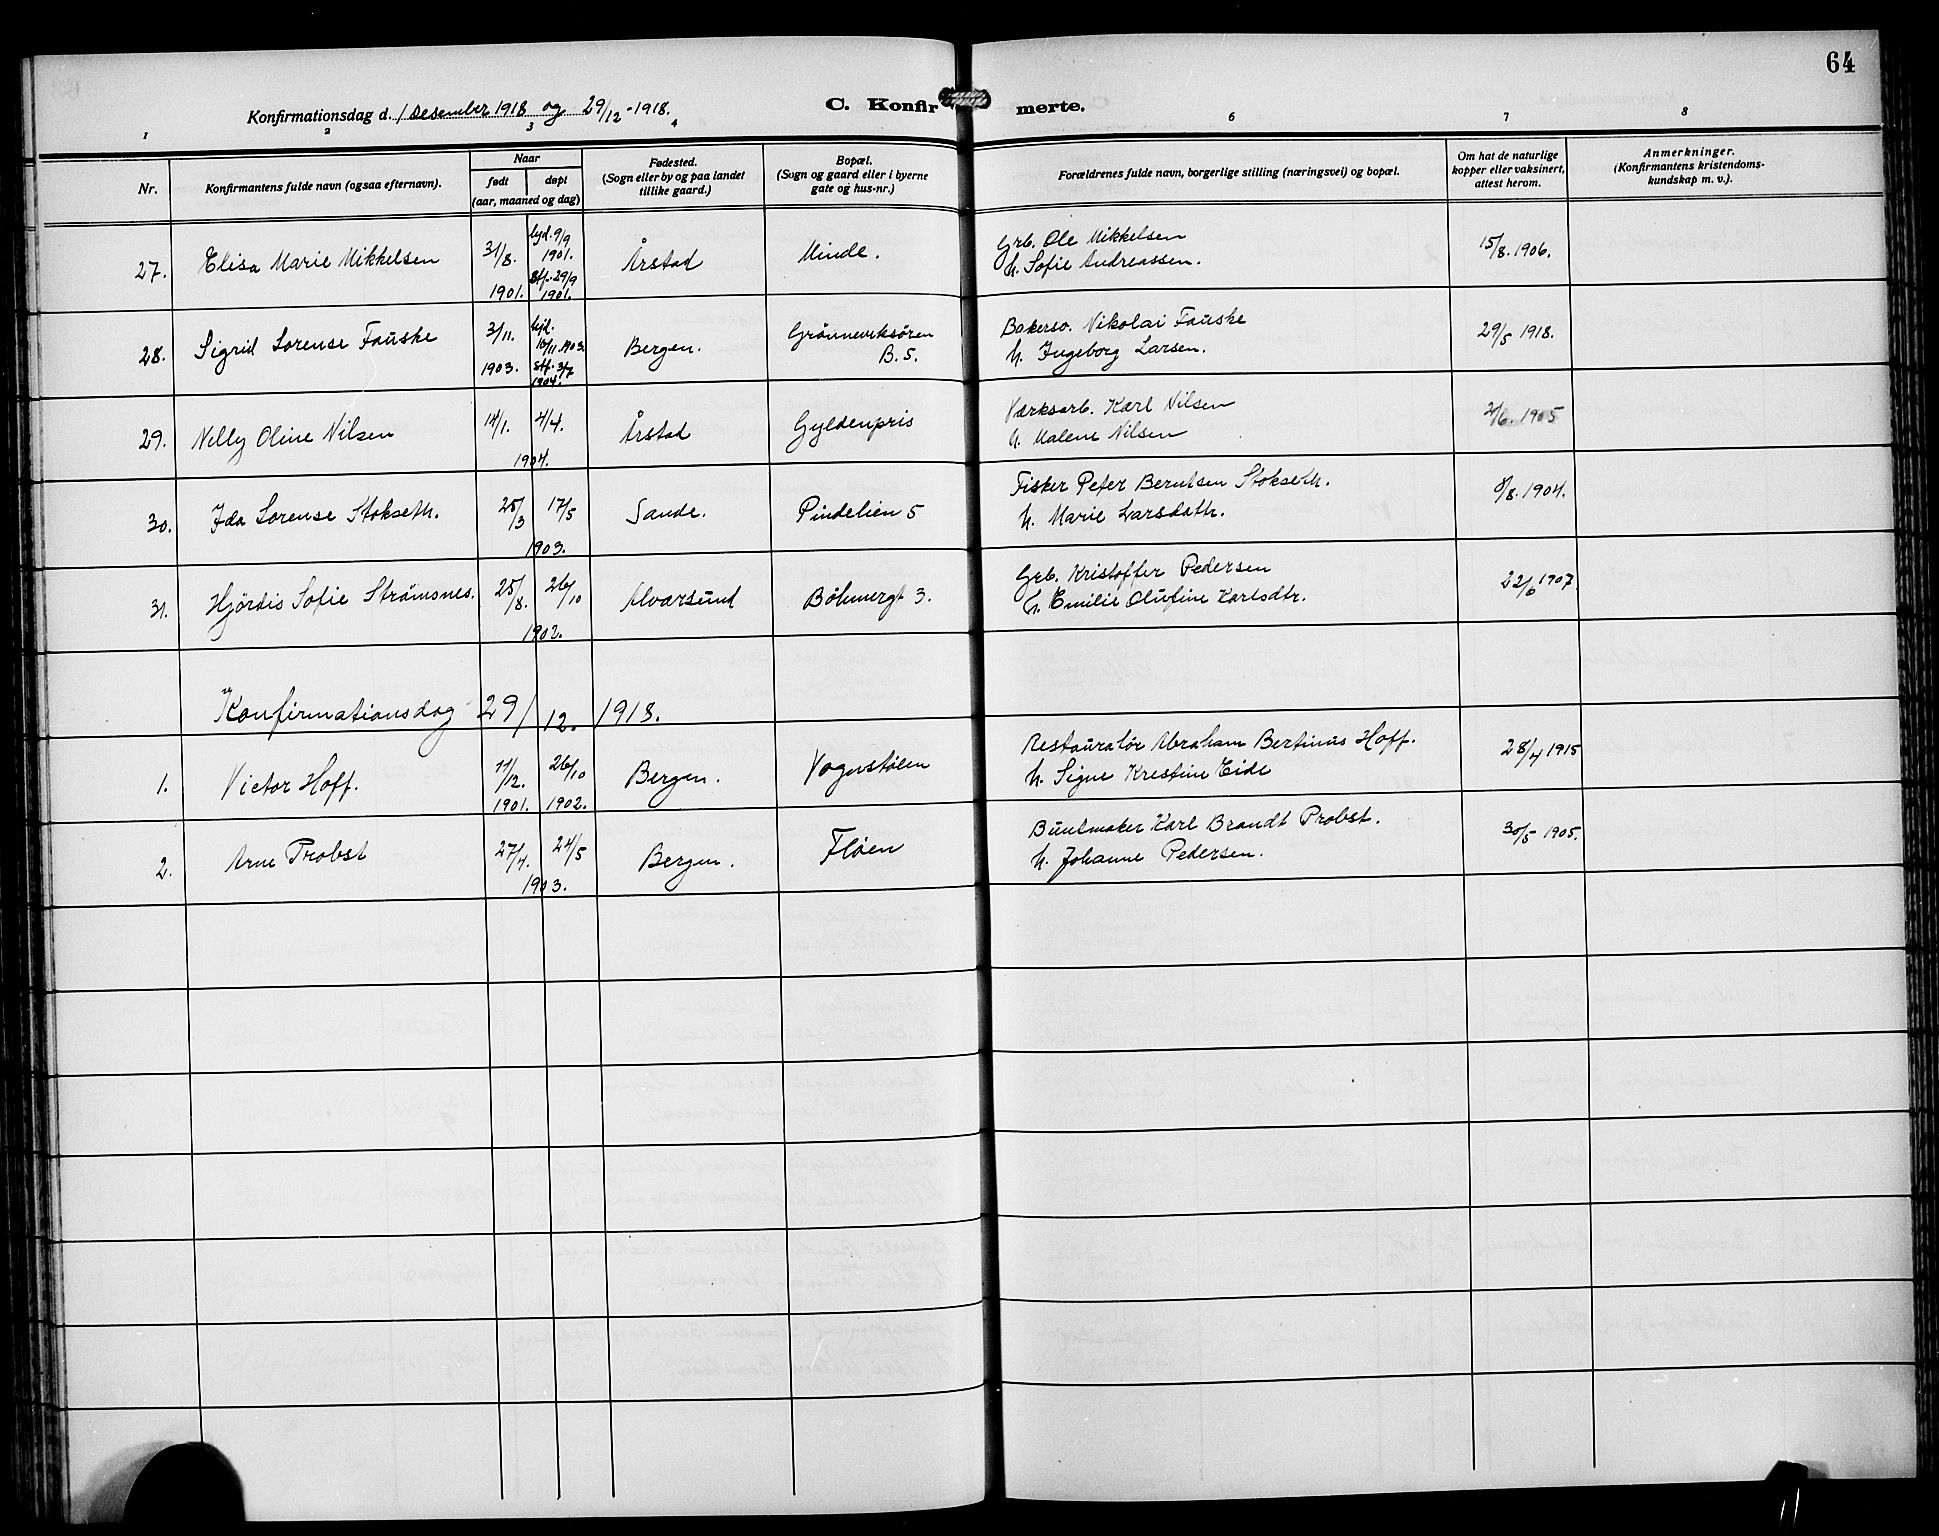 64
Konfirmationsdag d. 1 Desember 1918 og 29/12-1918.
C. Konfirmerte.
1 2 3 4 6 7 8
Nr.
Konfirmantens fulde navn (ogsaa efternavn).
Naar
født
døpt
(aar, maaned og dag)
Fødested.
(Sogn eller by og paa landet
tillike gaard.)
Bopæl.
(Sogn og gaard eller i byerne
gate og hus-nr.)
Forældrenes fulde navn, borgerlige stilling (næringsvei) og bopæl.
Om hat de naturlige
kopper eller vaksinert,
attest herom.
Anmerkninger.
(Konfirmantens kristendoms-
kundskap m. v.).
27. Elisa Marie Mikkelsen 31/8. 1901. hjd. 9/9 1901. Stf. 29/9 1901. Årstad Minde. Grb. Ole Mikkelsen 15/8. 1906.
h. Sofie Andreassen.
28. Sigrid Lorense Fauske 3/11. 1903. hjd. 16/11 1903. Stf. 3/7 1904. Bergen. Grønneviksøren B. 5. Bakersv. Nikolai Fauske 29/5 1918.
h. Ingeborg Larsen.
29. Nelly Oline Nilsen 14/1. 4/4. 1904. Årstad Gyldenpris Værksarb. Karl Nilsen 2/6. 1905
h. Malene Nilsen
30. Ida Lorense Stokseth. 25/3 17/5 1903. Sande. Pindelien 5 Fisker Peter Berntsen Stokseth. 8/8. 1904.
h. Marie Larsdatr.
31. Hjördis Sofie Strömsnes. 25/8. 26/10 1902. Alvarsund Böhmergt 3. Grb. Kristoffer Pedersen 22/6 1907.
h. Emilie Olufine Karlsdtr.
Konfirmationsdag 29/12. 1918.
1. Victor Hoff. 11/12. 1901. 26/10 1902. Bergen. Vognstølen Restauratør Abraham Bertinus Hoff. 28/4 1915
h. Signe Krestine Eide
2. Arne Probst 27/4. 24/5 1903. Bergen. Fløen Buntmaker Karl Brandt Probst. 30/5 1905.
h. Johanne Pedersen.